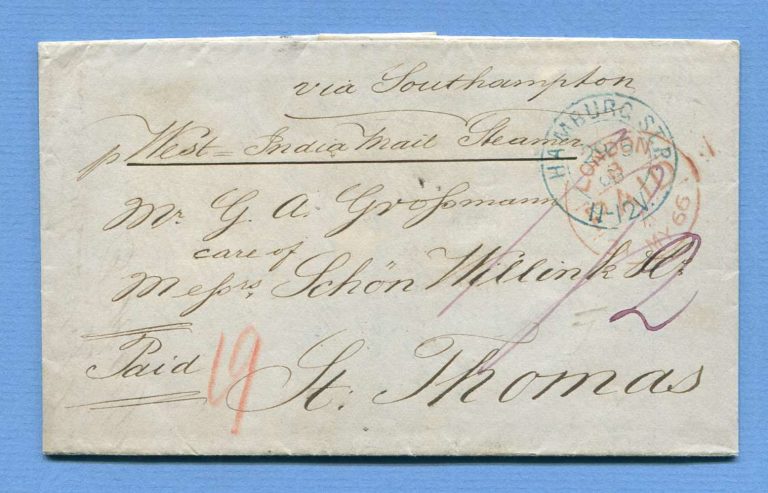 via Southampton
p West = India Mail Steamer
HAMBURG ST.P.
LONDON
11-12V.
MY 66
Mr. G. A. Großmann
care of
Messrs. Schön Willink & Co
2
Paid
19
St. Thomas